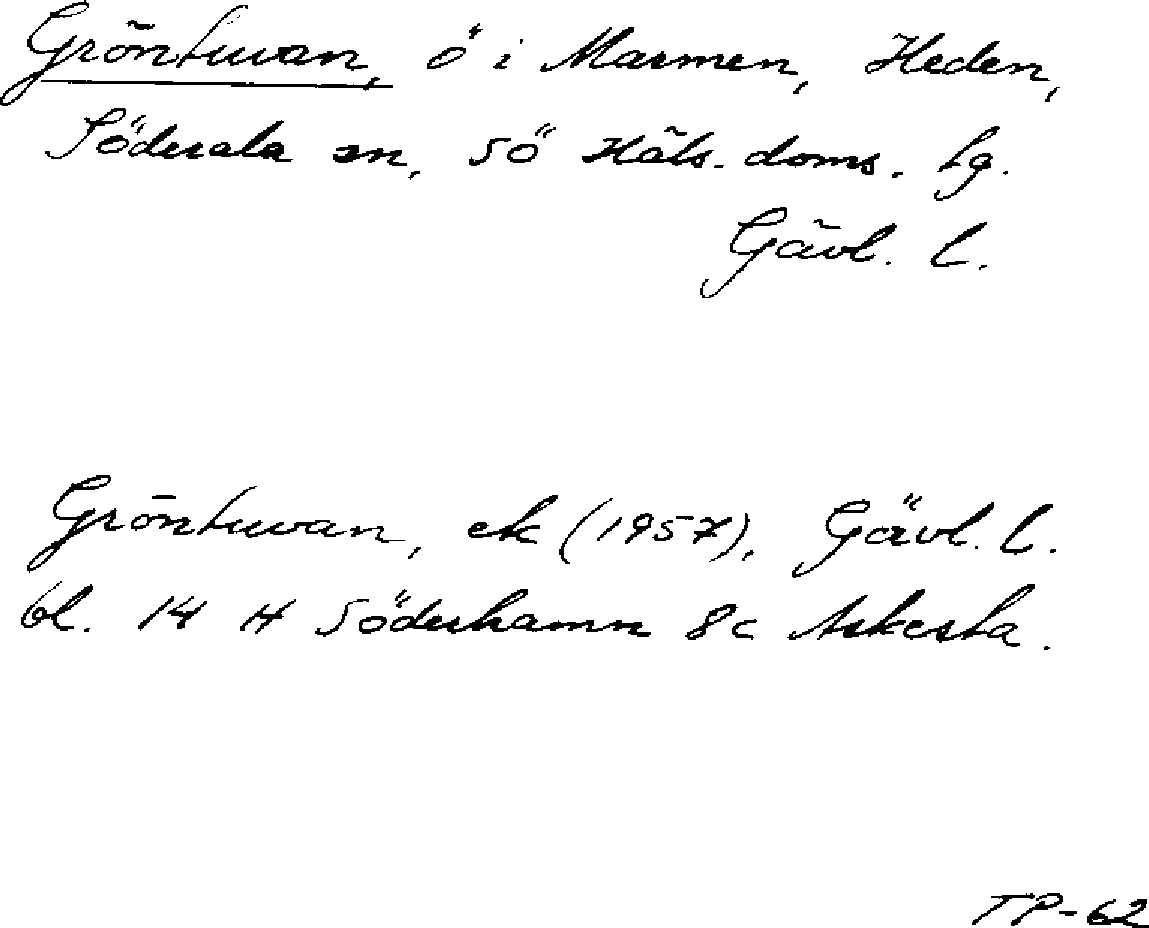 Gröntuvan, ö i Marmen, Heden,
Söderala sn, sö Häls. doms. tg.
Gävl. l.
Gröntuvan, ek (1957), Gävl. l.
bl. 14 H Söderhamn 8c Askesta.
TP-62